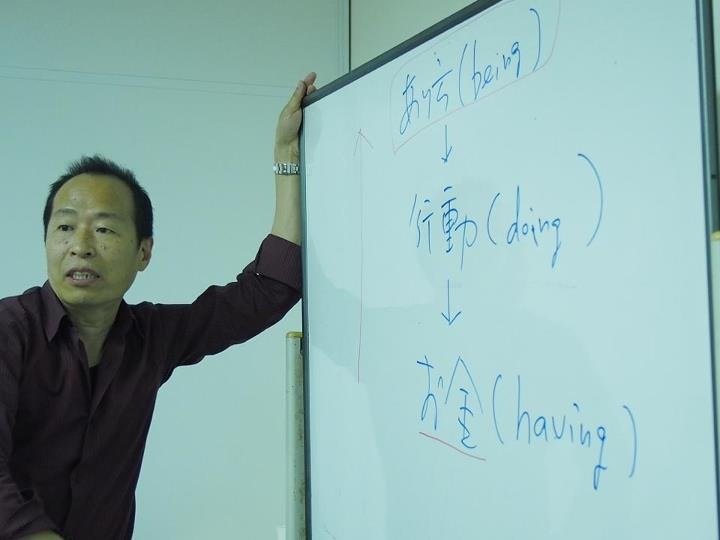 あり方(being)
行動(doing)
お金(having)